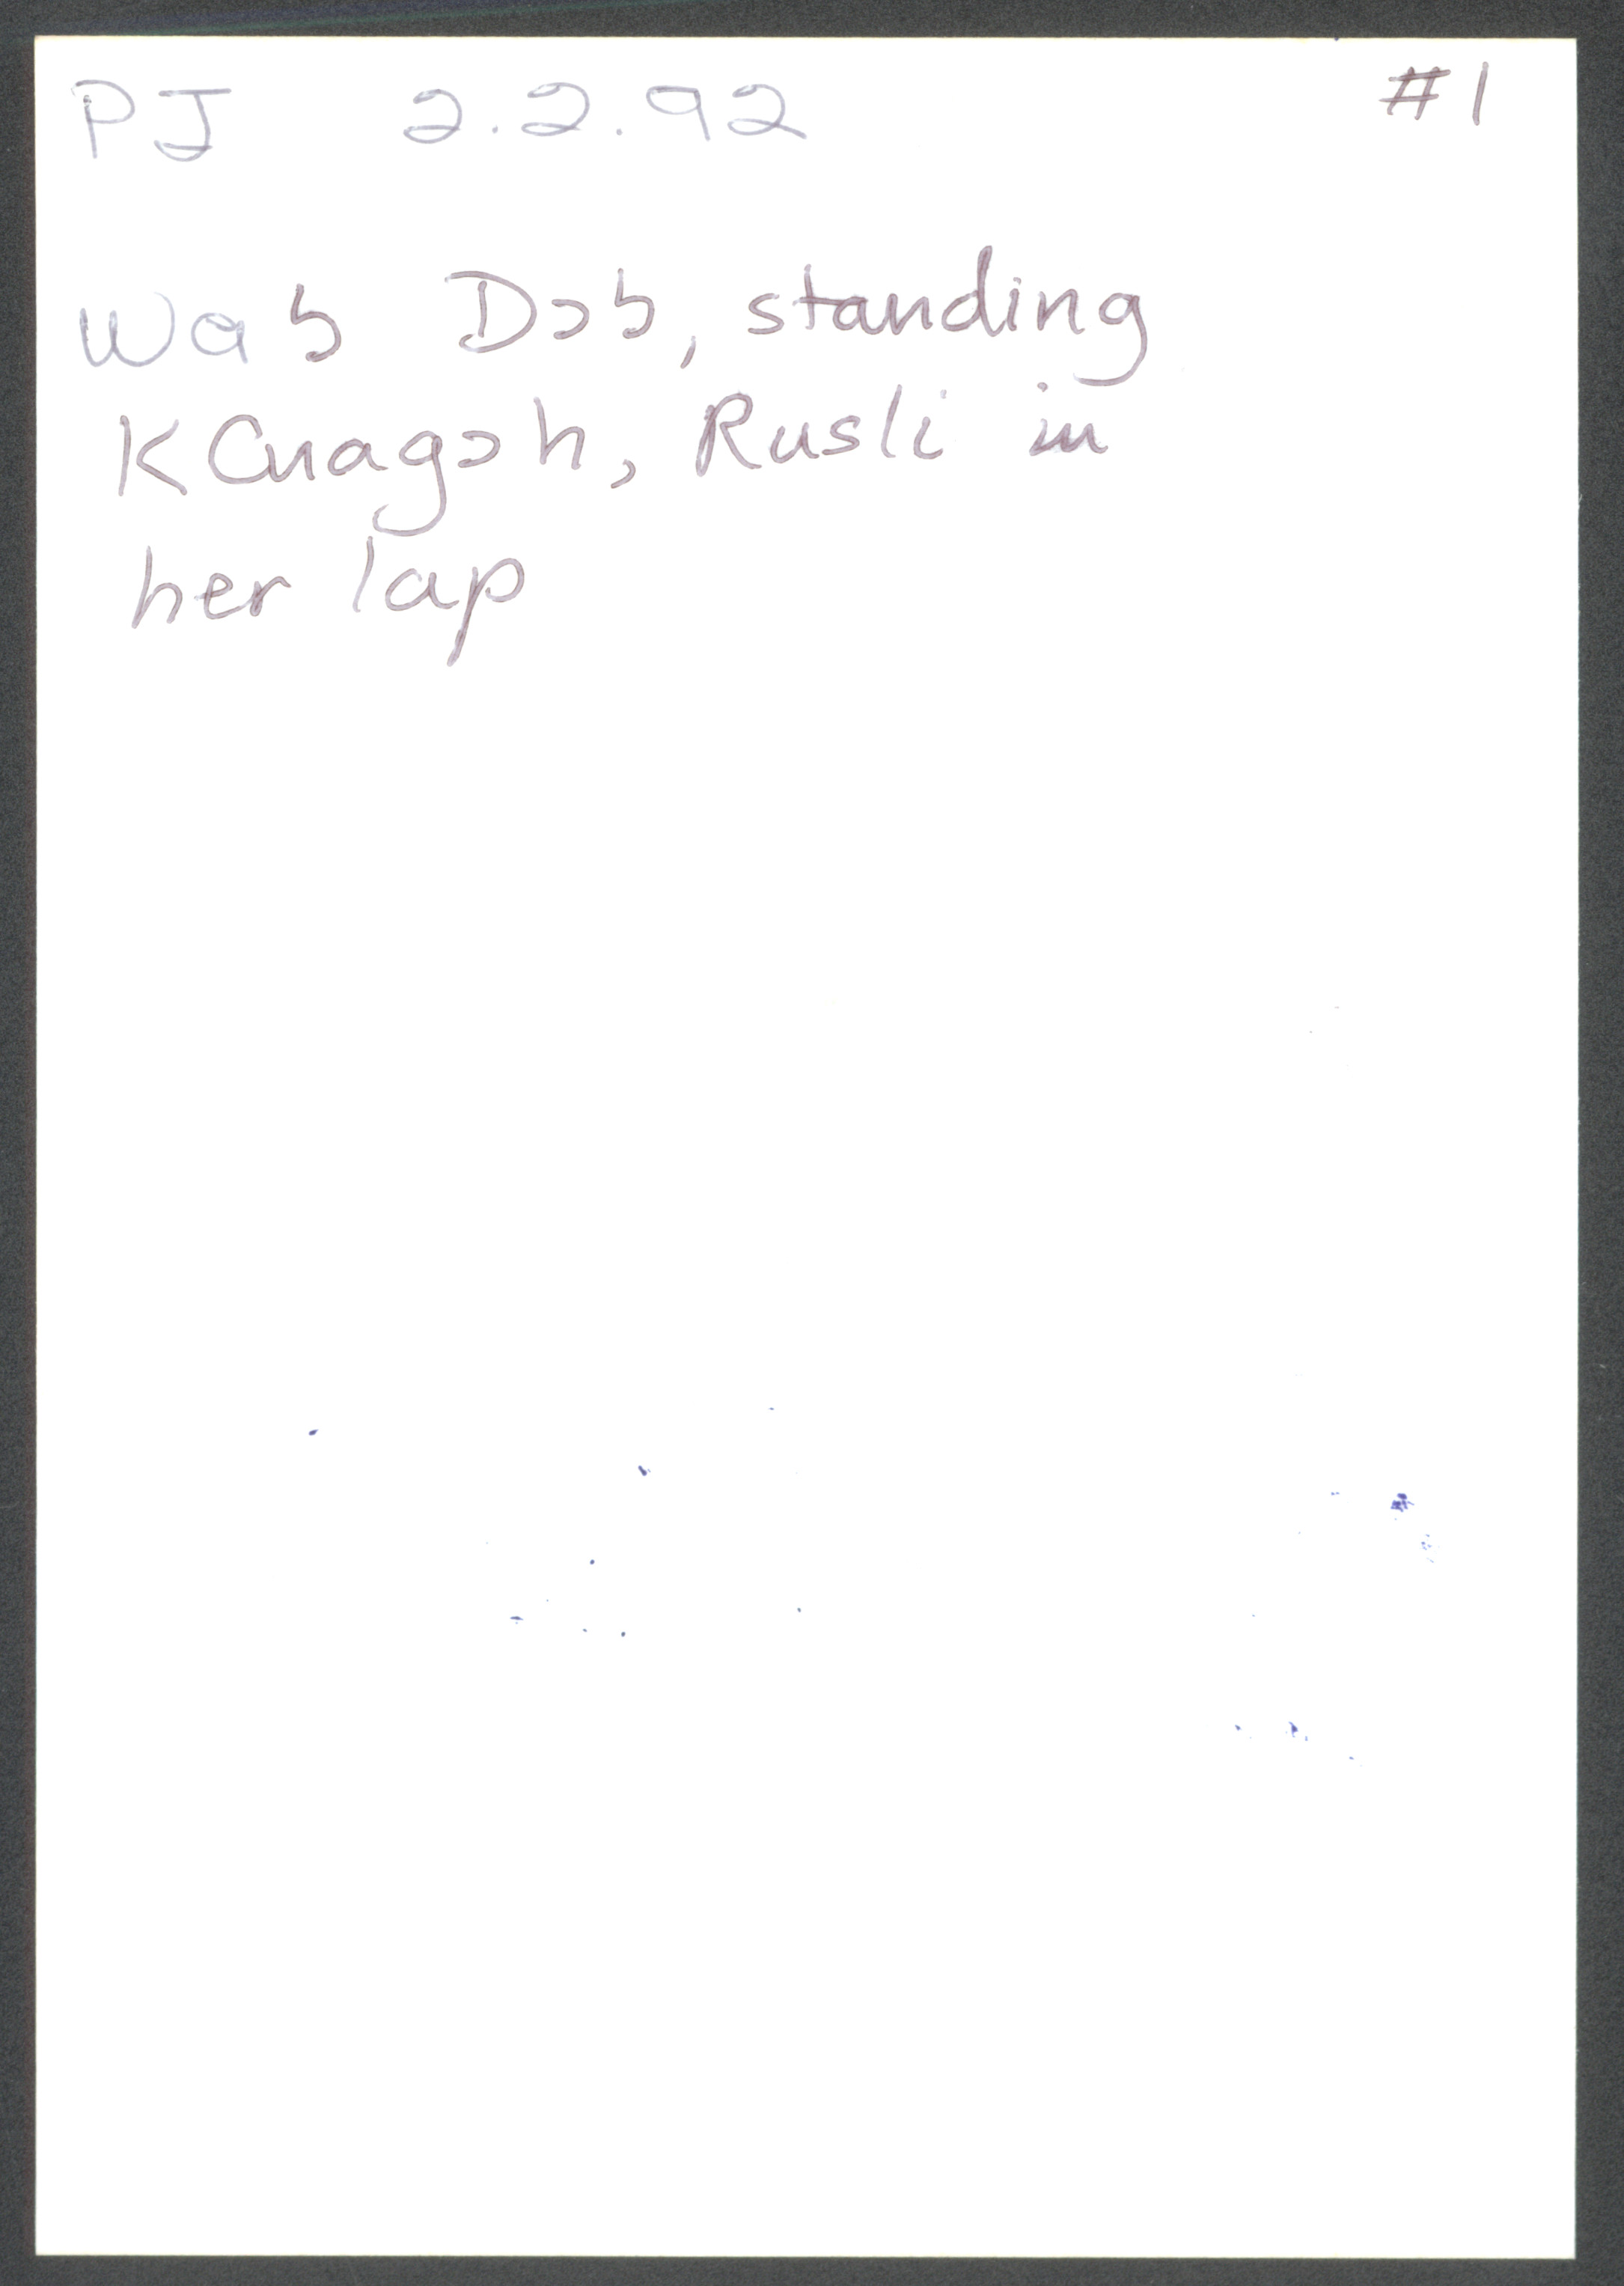 PJ 2.2.92 #1
Waɓ Dɔɓ, standing
KCnagɔh, Rusli in
her lap